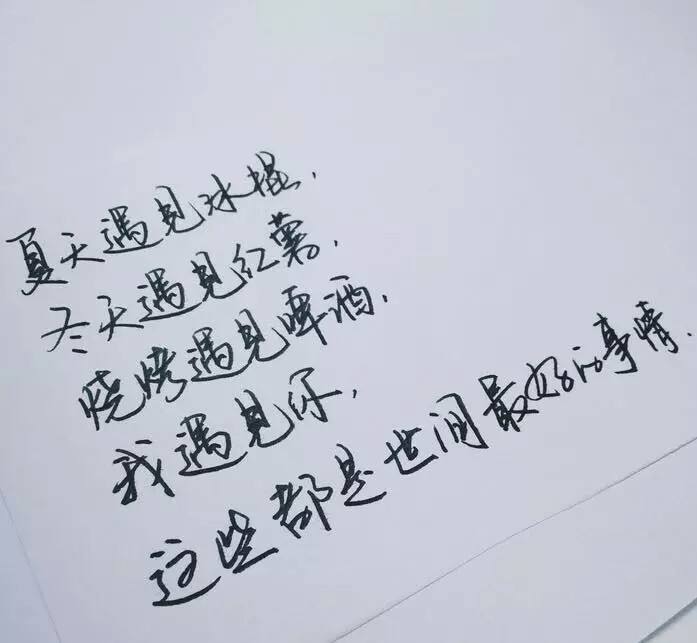 夏天遇见冰棍.
冬天遇见红薯.
烧烤遇见啤酒.
我遇见你.
这些都是世间最好的事情.